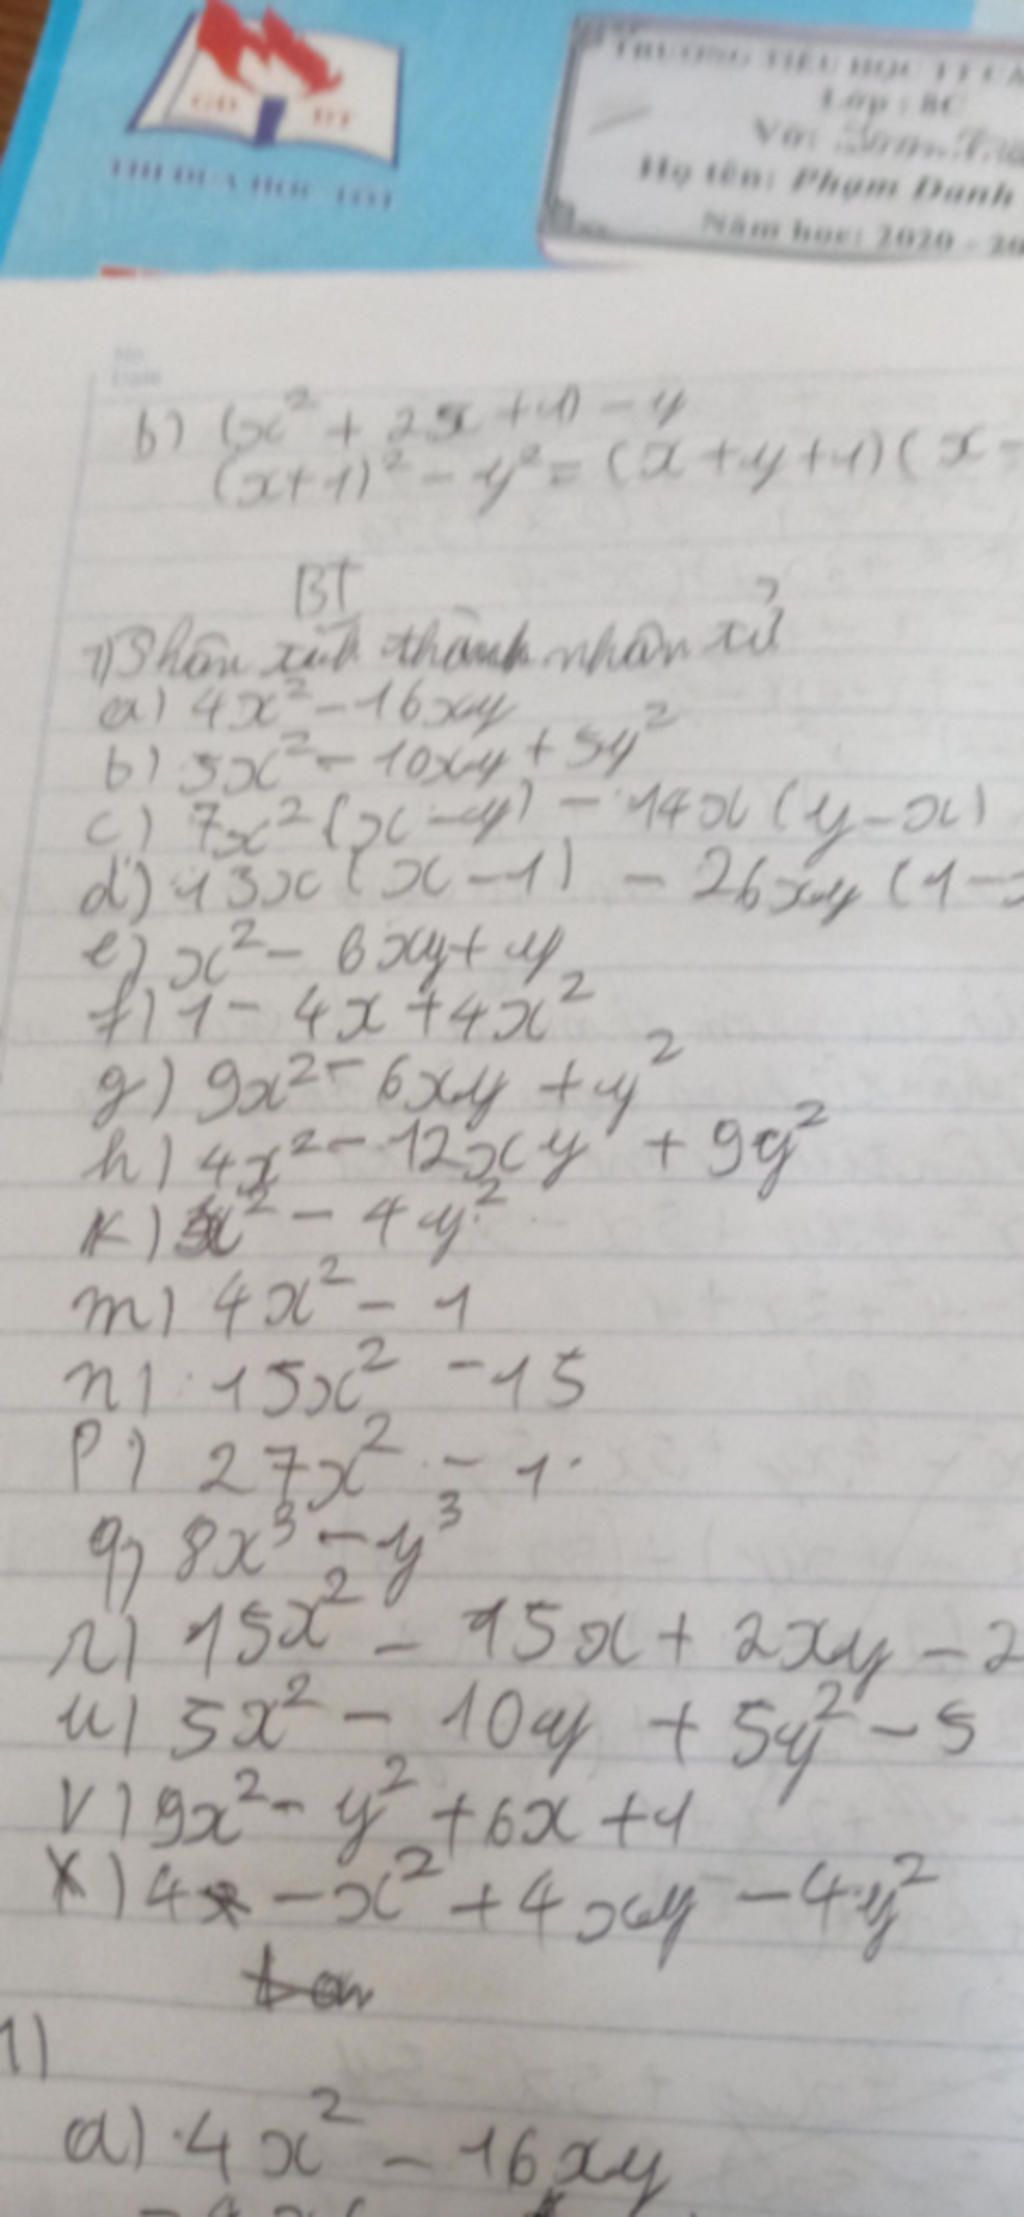 GD ĐT
THI ĐUA HỌC TỐT
TRƯỜNG TIỂU HỌC TT
Lớp : 8C
Vở:
Họ tên: Phạm Danh
Năm học: 2020 - 20
No
Date
b) (x² + 2x + 1) - y
(x+1)² - y² = (x + y + 1) ( x -
BT
1) Phân tích thành nhân tử
a) 4x² - 16xy
b) 5x² - 10xy + 5y²
c) 7x² (x - y) - 14x (y - x)
d) 13x (x - 1) - 26xy (1 -
e) x² - 6xy + y
f) 1 - 4x + 4x²
g) 9x² - 6xy + y²
h) 4x² - 12xy + 9y²
k) x² - 4y²
m) 4x² - 1
n) 15x² - 15
p) 27x² - 1
q) 8x³ - y³
r) 15x² - 15x + 2xy - 2
u) 5x² - 10y + 5y² - 5
v) 9x² - y² + 6x + 1
x) 4 - x² + 4xy - 4y²
1)
a) 4x² - 16xy